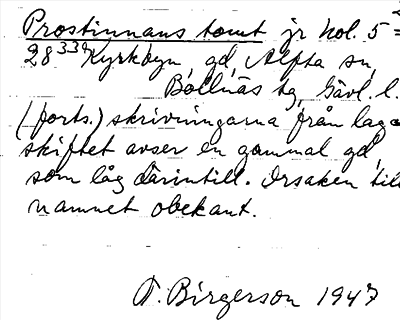 Prostinnans tomt jr No1. 5=
28 339 Kyrkbyn, gd, Alfta sn,
Bollnäs tg, Gävl. l.
(forts.) skrivningarna från laga
skiftet avser en gammal gd,
som låg därintill. Orsaken till
namnet obekant.
T. Birgerson 1947